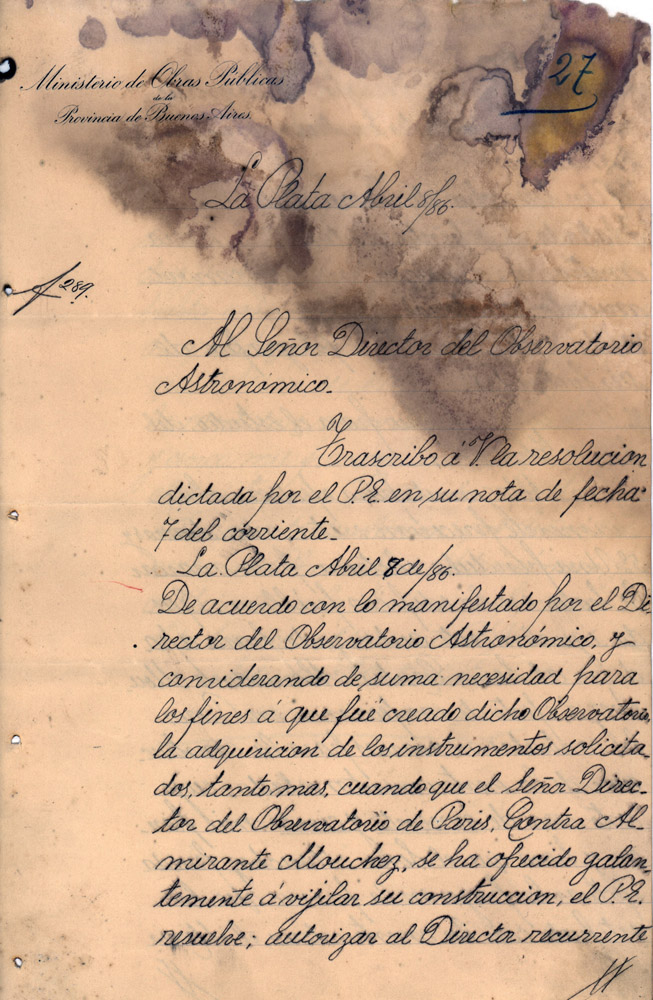 27
Ministerio de Obras Públicas
de la
Provincia de Buenos Aires.
La Plata Abril 8/86.
289.
Al Señor Director del Observatorio
Astronómico.
Trascribo á V. la resolucion
dictada por el P.E. en su nota de fecha
7 del corriente.
La Plata Abril 8 de/86.
De acuerdo con lo manifestado por el Di-
rector del Observatorio Astronómico, y
considerando de suma necesidad para
los fines á que fué creado dicho Observatorio,
la adquisicion de los instrumentos solicita-
dos, tanto mas, cuando que el Señor Direc-
tor del Observatorio de Paris, Contra Al-
mirante Mouchez, se ha ofrecido galan-
temente á vijilar su construccion, el P.E.
resuelve; autorizar al Director recurrente